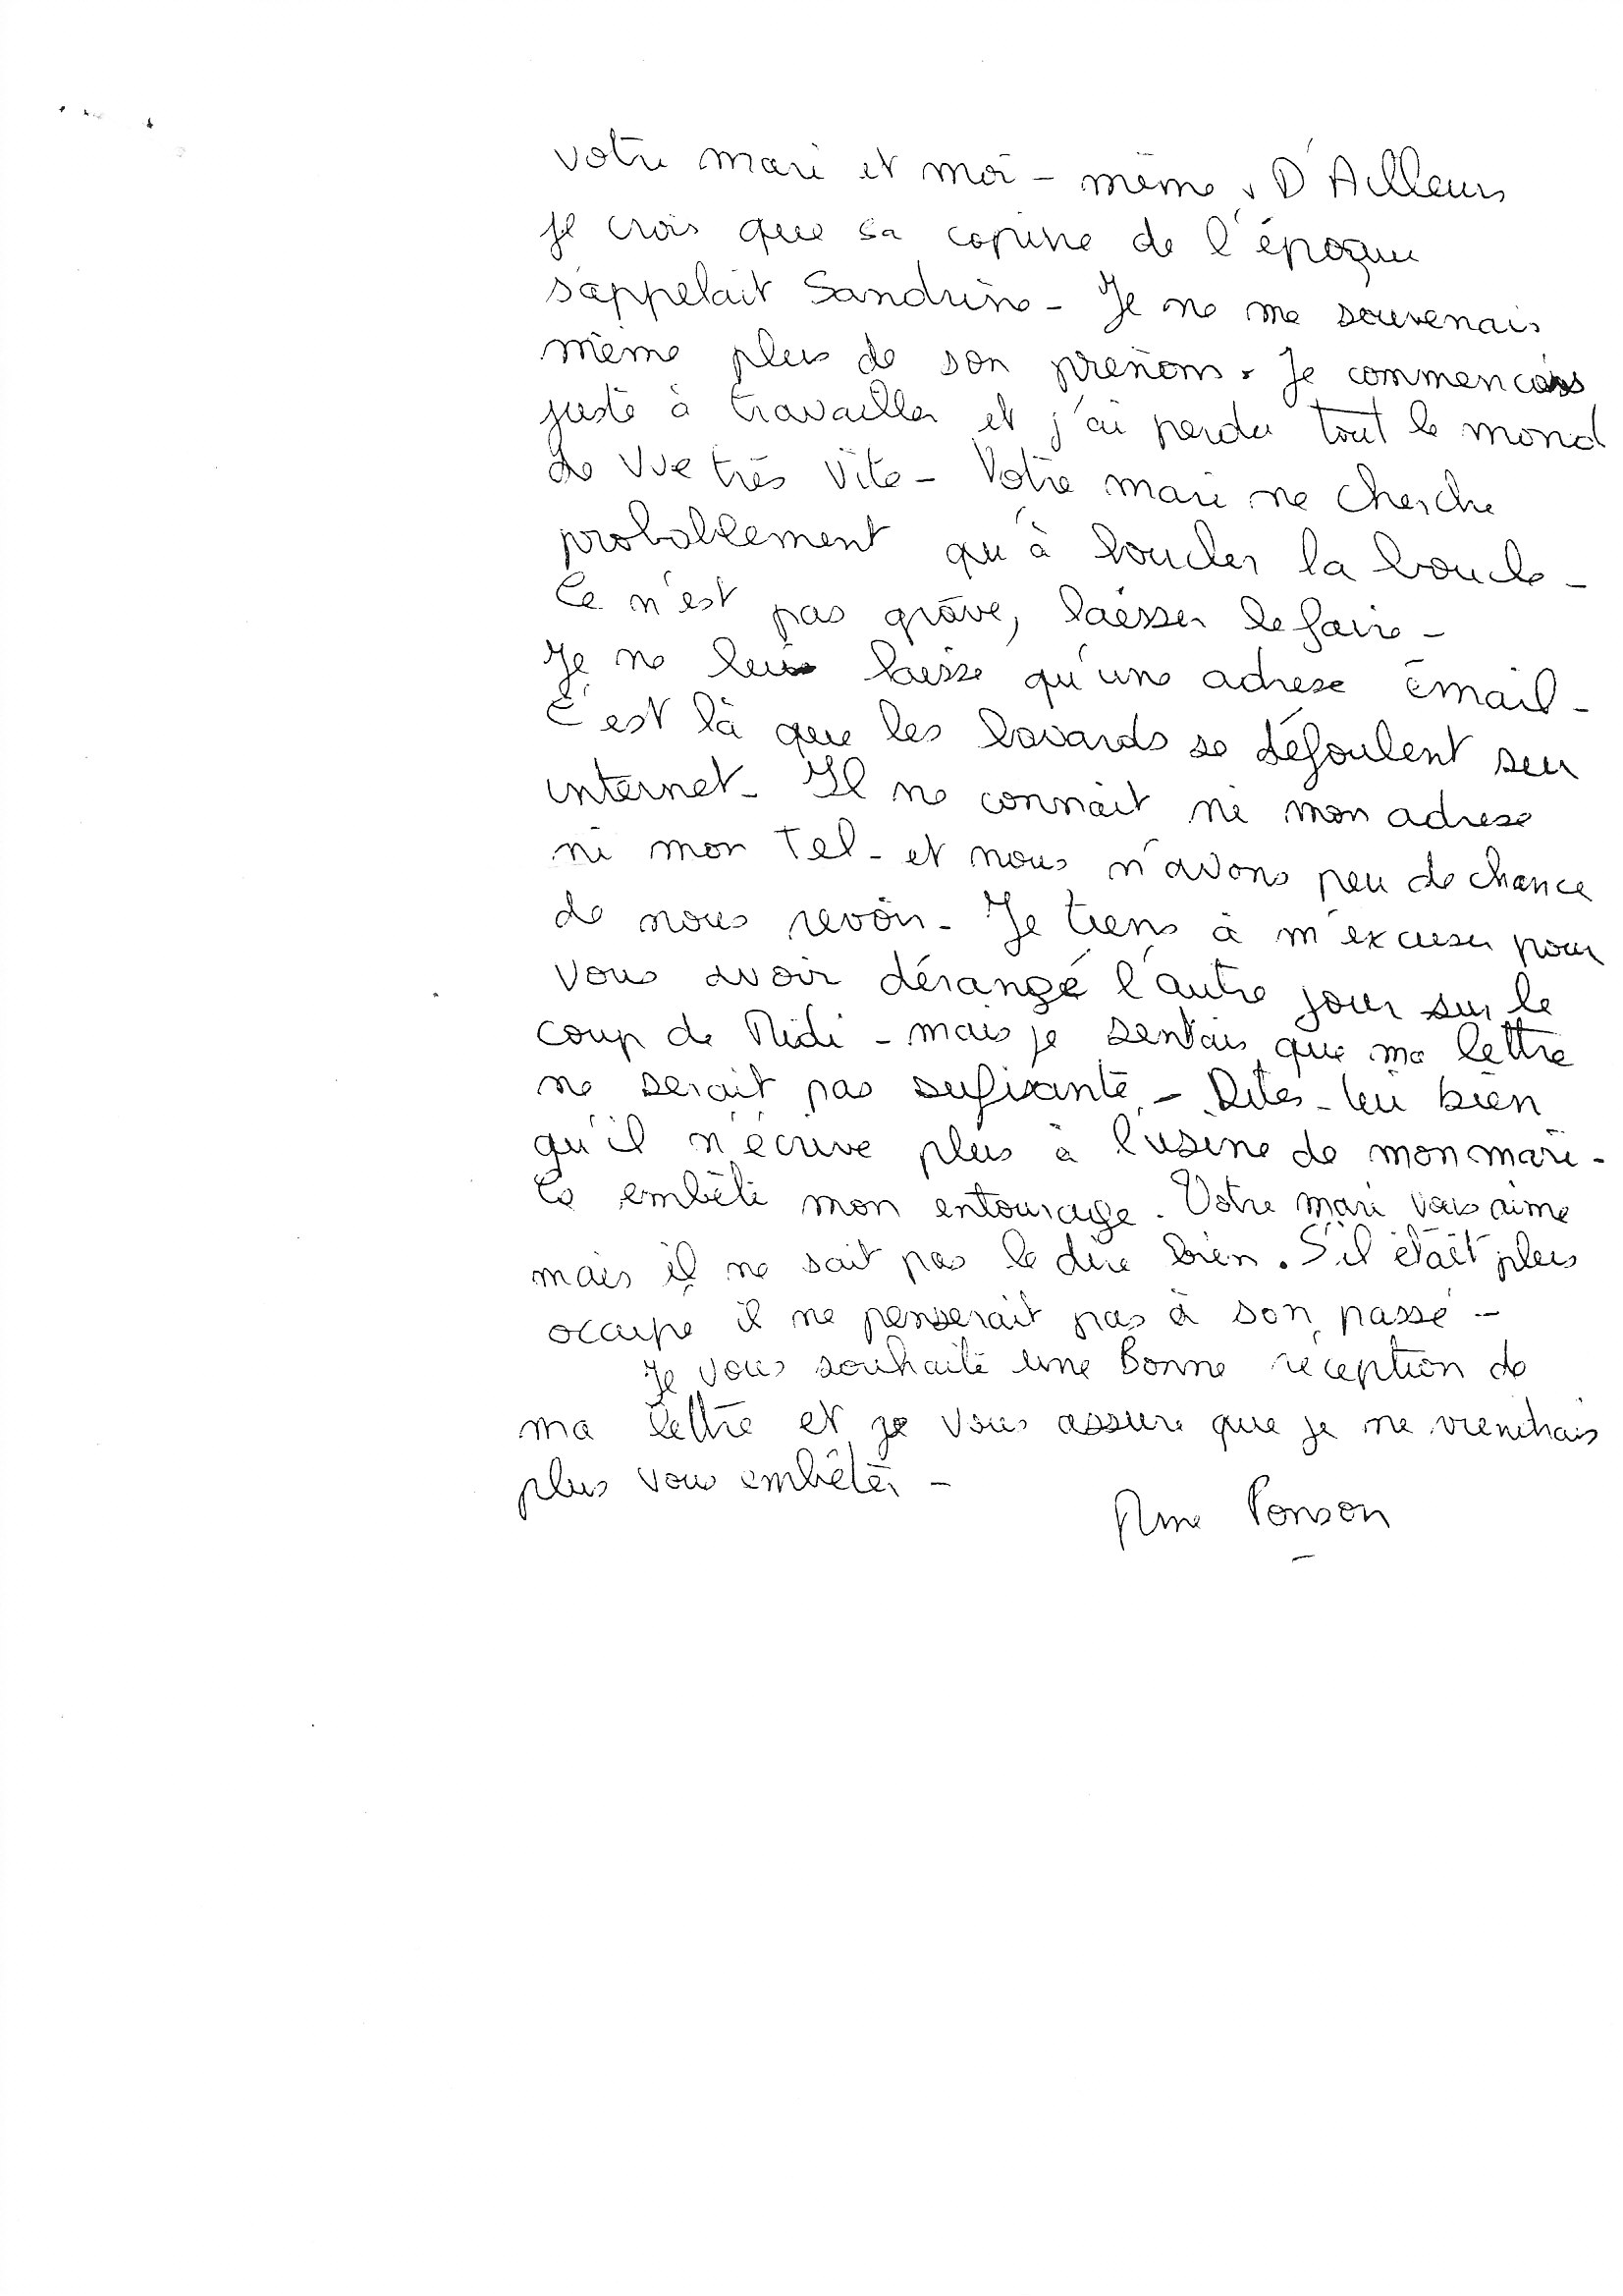 votre mari et moi - même. D'Ailleurs
je crois que sa copine de l'époque
s'appelait Sandrine - Je ne me souvenais
même plus de son prénom. Je commencais
juste à travailler et j'ai perdu tout le mond
de vue très vite - Votre mari ne cherche
probablement qu'à boucler la boucle -
Ce n'est pas grave, laisser le faire -
Je ne lui laisse qu'une adresse émail -
C'est là que les bavards se défoulent sur
internet - Il ne connait ni mon adresse
ni mon Tel - et nous n'avons peu de chance
de nous revoir - Je tiens à m'excuser pour
vous avoir dérangé l'autre jour sur le
coup de Midi - mais je sentais que ma lettre
ne serait pas sufisante - Dites - lui bien
qu'il n'écrive plus à l'usine de mon mari -
Ca embête mon entourage. Votre mari vous aime
mais il ne sait pas le dire bien. S'il était plus
occupé il ne penserait pas à son passé -
Je vous souhaite une Bonne réception de
ma lettre et je vous assure que je ne viendrais
plus vous embêter -
Mme Ponson